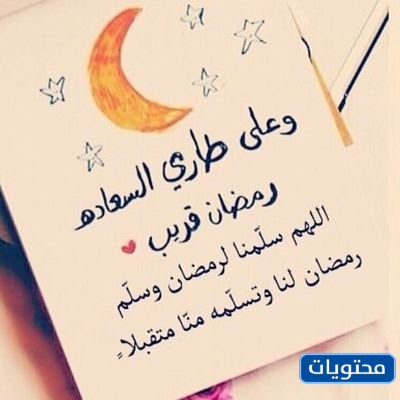 وعلى طاري السعاده
رمضان قريب
اللهم سلّمنا لرمضان وسلّم
رمضان لنا وتسلّمه منّا متقبلاً
محتويات